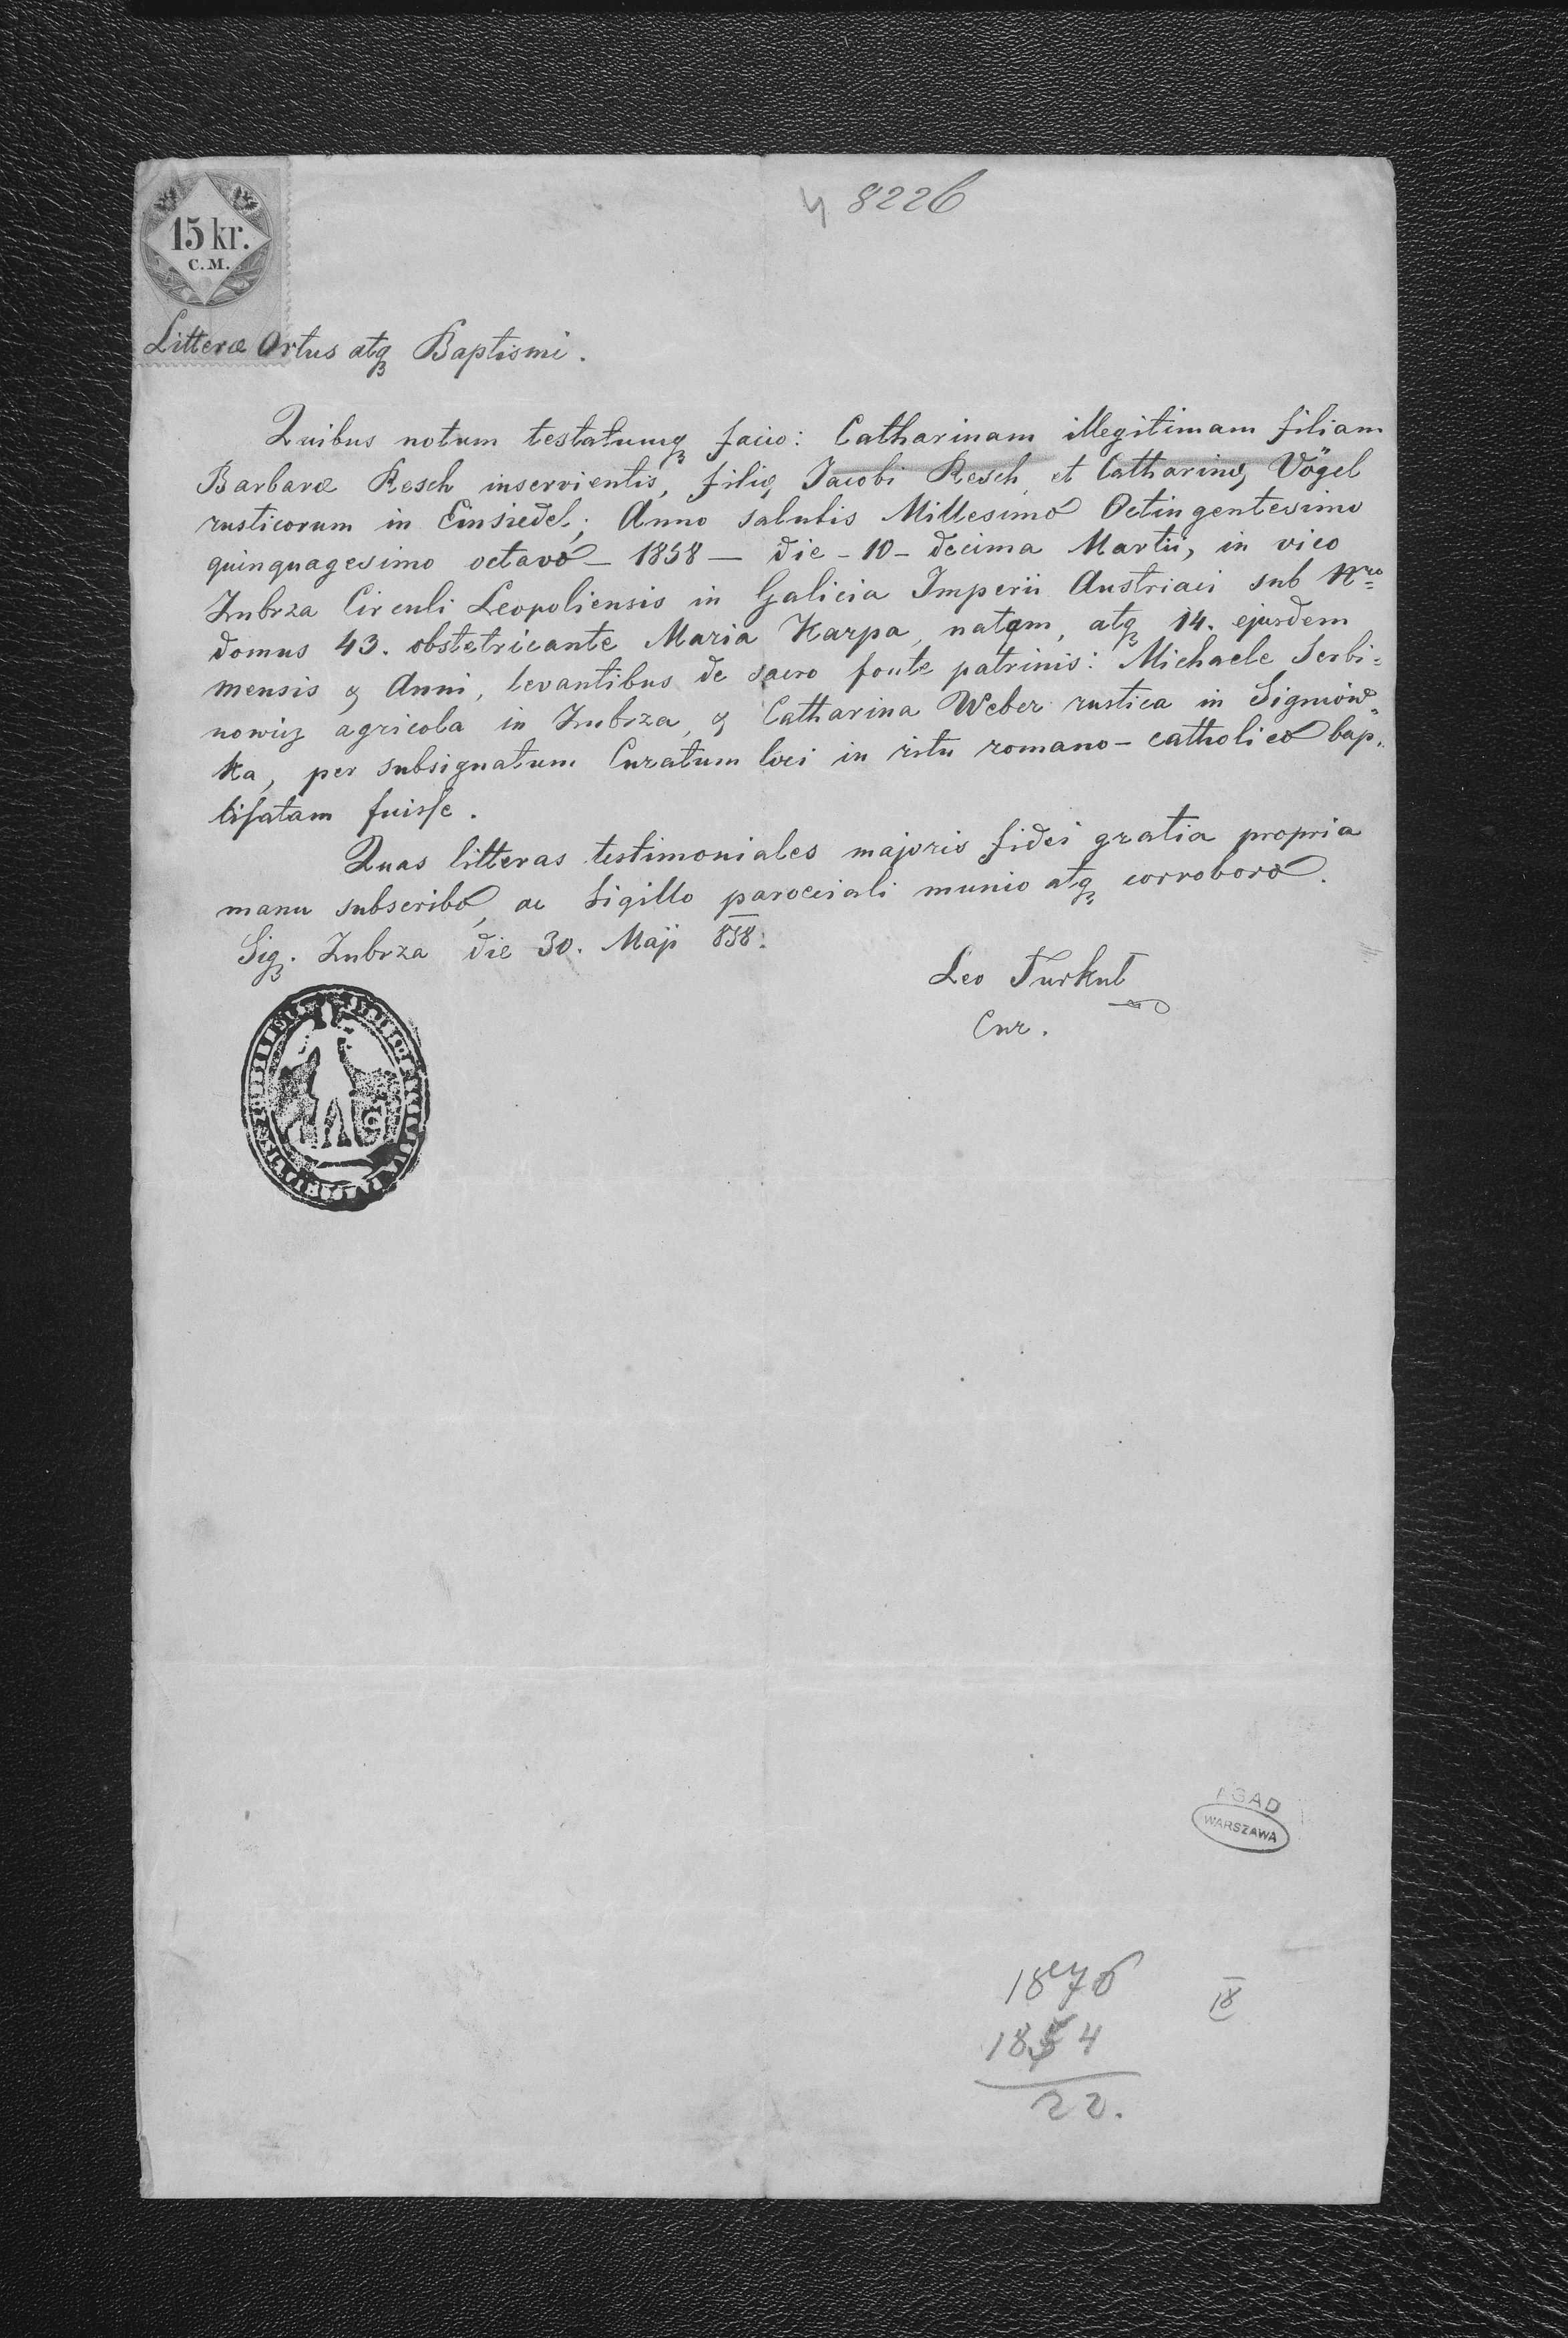 4 8226
15 kr.
C.M.
Litteræ Ortus atq₃ Baptismi.
Quibus notum testatumq₃ facio: Catharinam illegitimam filiam
Barbaræ Resch inservientis, filię Jacobi Resch et Catharinę Vögel
rusticorum in Einsiedel; Anno salutis Millesimo Octingentesimo
quinquagesimo octavo – 1858 – die – 10 – decima Martii, in vico
Zubrza Circuli Leopoliensis in Galicia Imperii Austriaci sub Nro
domus 43. obstetricante Maria Karpa, natam, atq₃ 14. ejusdem
mensis & Anni, levantibus de sacro fonte patrinis: Michaele Serbi=
nowicz agricola in Zubrza, & Catharina Weber rustica in Signiów=
ka, per subsignatum Curatum loci in ritu romano-catholico bap=
tisatam fuisse.
Quas litteras testimoniales majoris fidei gratia propria
manu subscribo, ac sigillo parocciali munio atq₃ corroboro.
Sig. Zubrza die 30. Maji 858.
Leo Turkuł
Cur.
AGAD
WARSZAWA
1876
18
1854
22.